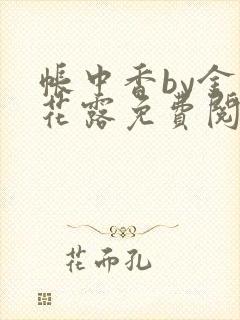 帐中香by金
花露免費閱
花而孔